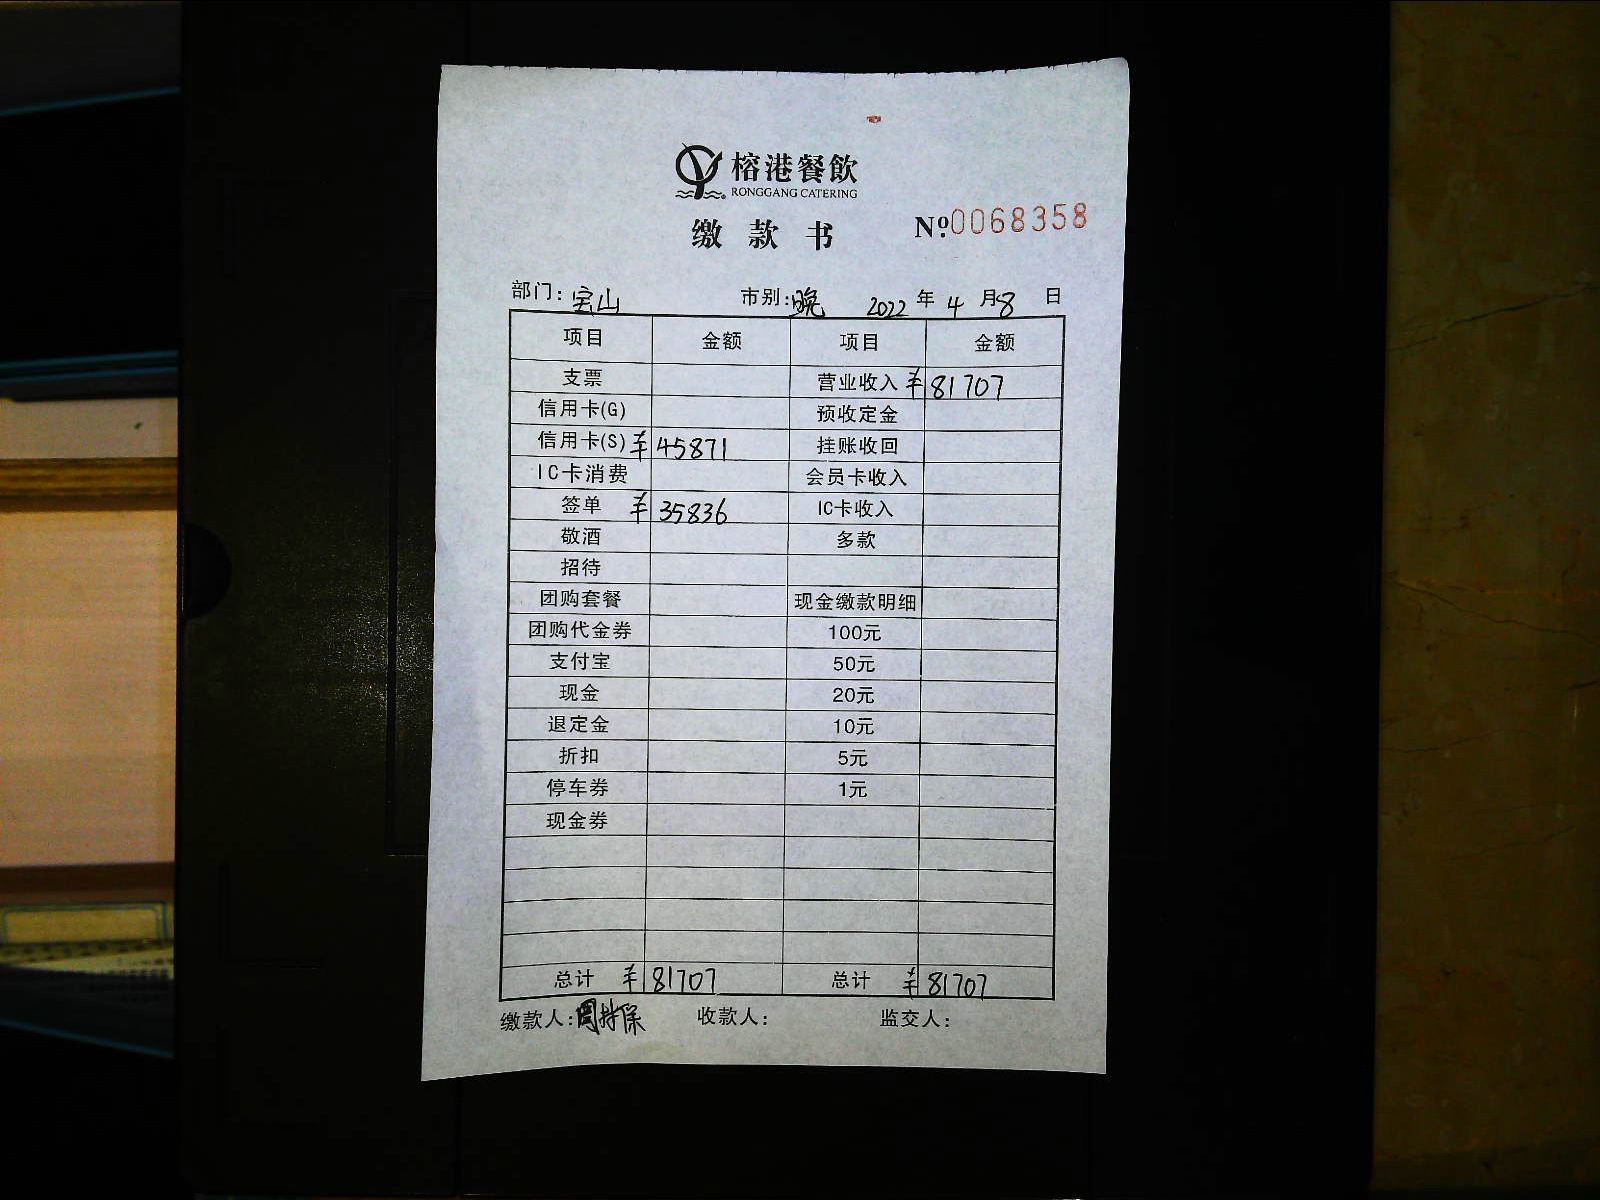 榕港餐飲
RONGGANG CATERING
缴款书 №0068358
部门:宝山 市别:晚 2022年4月8日
项目 金额 项目 金额
支票 营业收入 ¥81707
信用卡(G) 预收定金
信用卡(S) ¥45871 挂账收回
IC卡消费 会员卡收入
签单 ¥35836 IC卡收入
敬酒 多款
招待
团购套餐 现金缴款明细
团购代金券 100元
支付宝 50元
现金 20元
退定金 10元
折扣 5元
停车券 1元
现金券
总计 ¥81707 总计 ¥81707
缴款人: 收款人: 监交人: